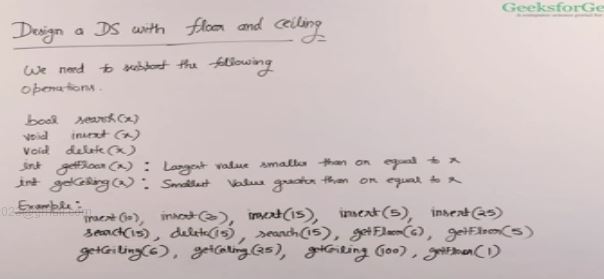 GeeksforGe
Design a DS with floor and ceiling
We need to support the following
operations.
bool search(x)
void insert(x)
void delete(x)
int getFloor(x) : Largest value smaller than or equal to x
int getCeiling(x) : Smallest value greater than or equal to x
Example:
insert(10), insert(20), insert(15), insert(5), insert(25)
search(15), delete(15), search(15), getFloor(6), getFloor(5)
getCeiling(6), getCeling(25), getCeiling(100), getFloor(1)